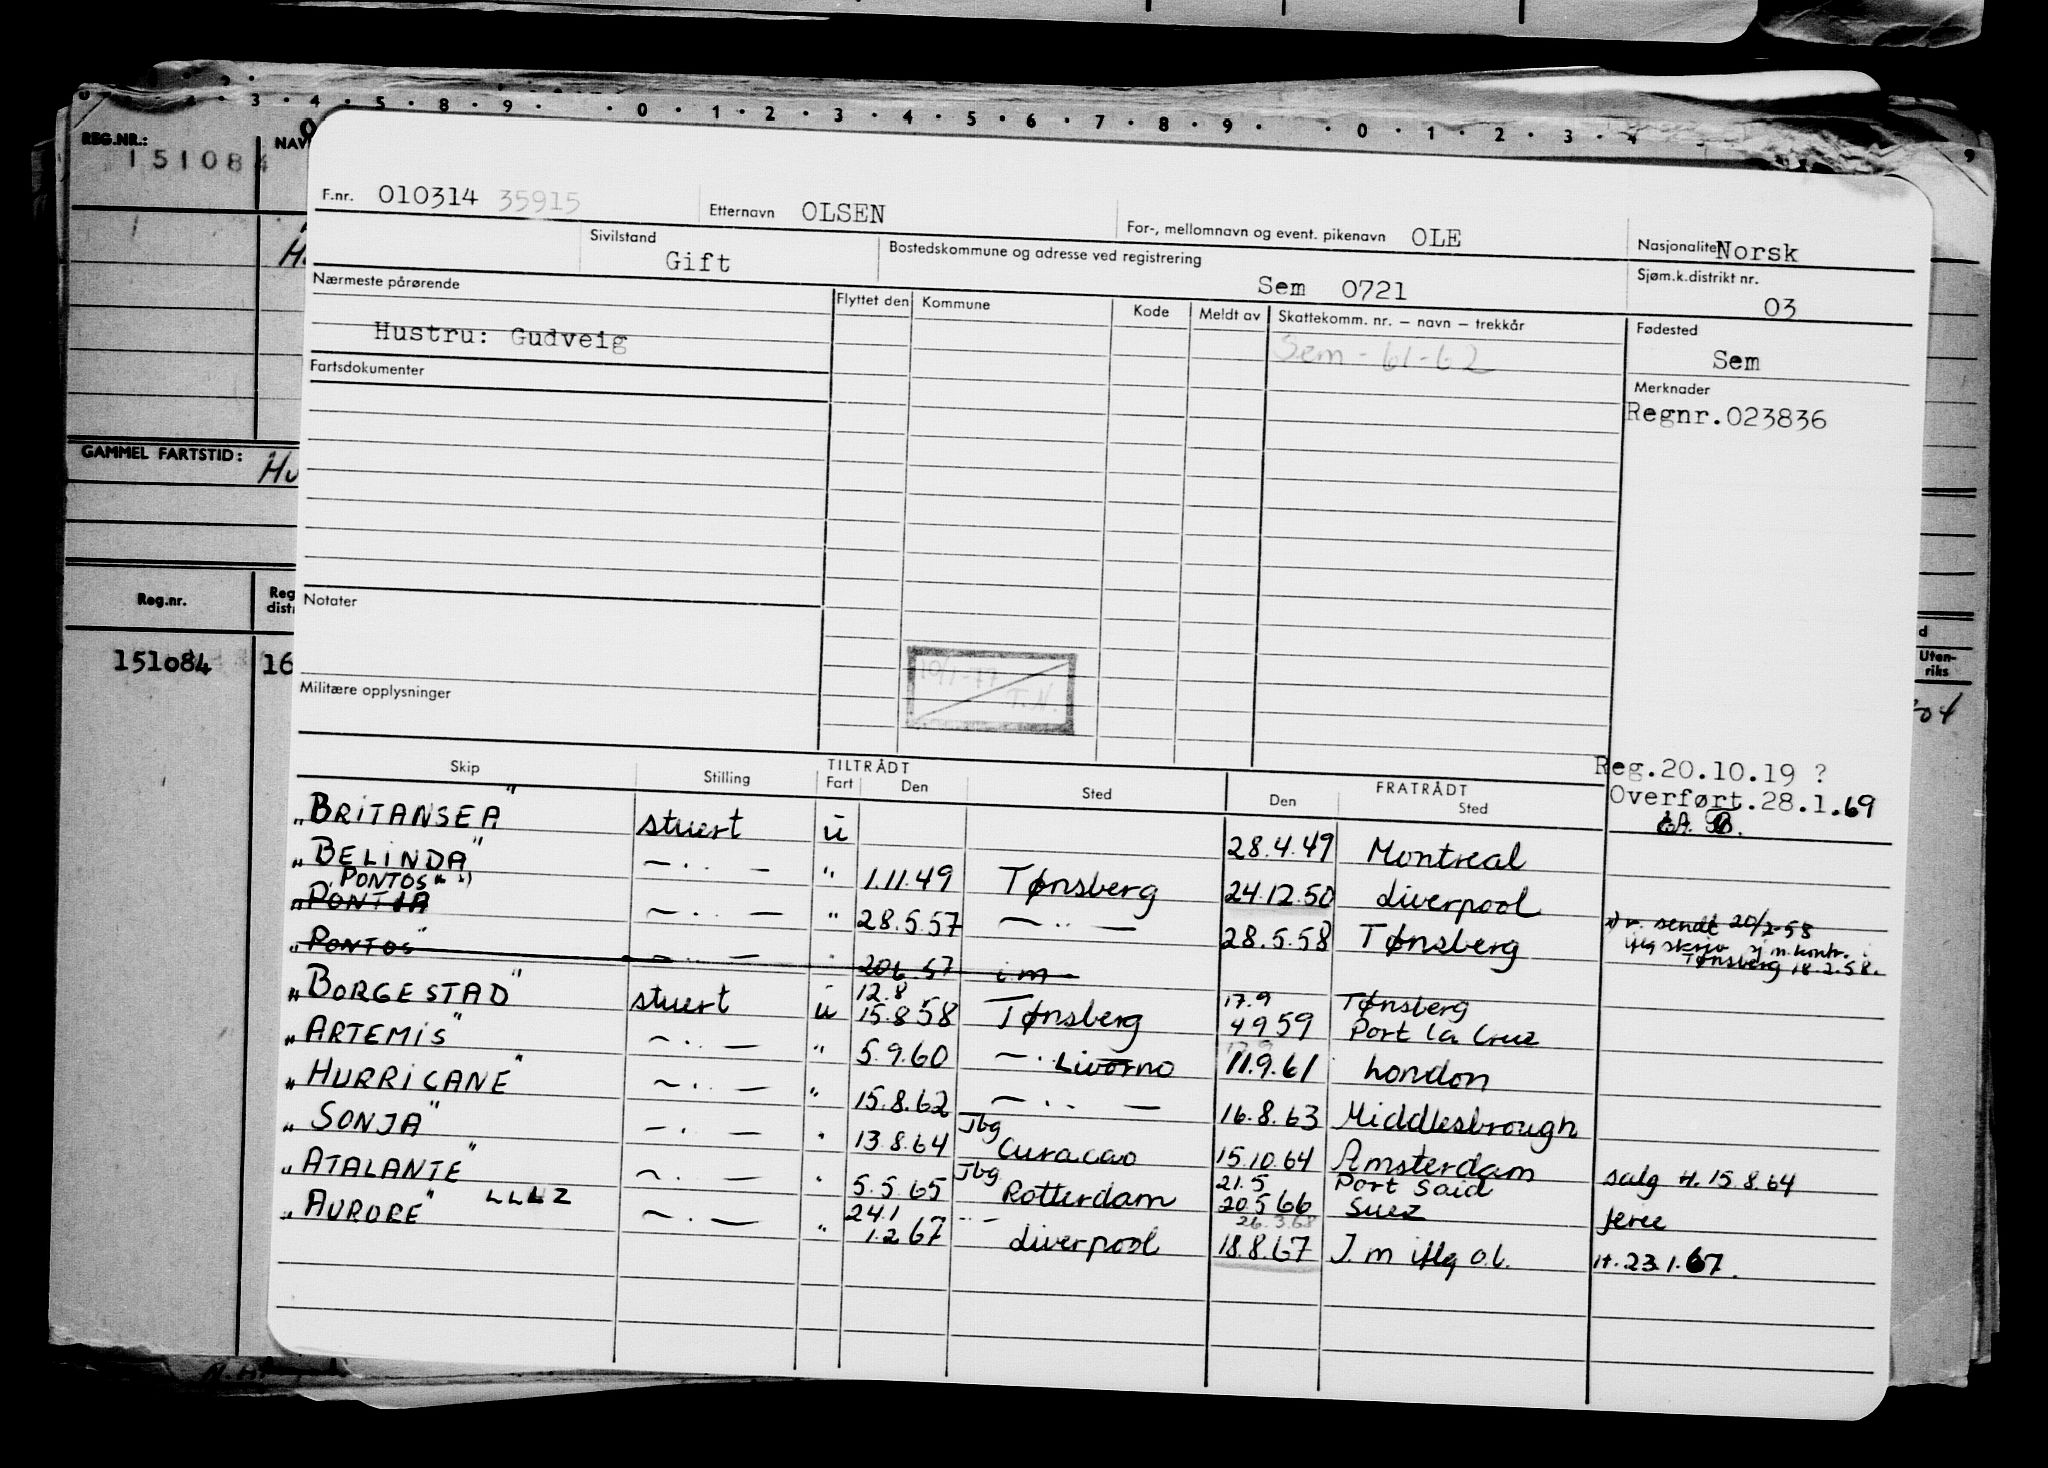 REG.NR.:
151084
NAV
GAMMEL FARTSTID:
Reg.nr.
Reg
distr
151084
16
Uten-
riks
F.nr. 010314 35915
Etternavn OLSEN
For-, mellomnavn og event. pikenavn OLE
Nasjonalitet Norsk
Sivilstand
Gift
Bostedskommune og adresse ved registrering
Sem 0721
Sjøm.k.distrikt nr.
03
Nærmeste pårørende
Hustru: Gudveig
Flyttet den Kommune Kode Meldt av Skattekomm. nr. – navn – trekkår
Sem - 61-62
Fødested
Sem
Fartsdokumenter
Merknader
Regnr.023836
Notater
10/1-77
T.N.
Militære opplysninger
Reg.20.10.19 ?
Overført.28.1.69
Skip Stilling TILTRÅDT Fart Den Sted FRATRÅDT Den Sted
"BRITANSEA" stuert u 28.4.49 Montreal
"BELINDA" — . . — " 1.11.49 Tønsberg 24.12.50 Liverpool
PONTOS" x)
"PONTIA — . . — " 28.5.57 — . . — 28.5.58 Tønsberg x) v. sendt 20/2-58
iflg skriv sj.m.kontr. i
Tønsberg 18.2.58.
"PONTOS" — . . — " 20.6.57 i.m
12.8 17.9 Tønsberg
"BORGESTAD" stuert u 15.8.58 Tønsberg 4.9.59 Port la Cruz
17.9
"ARTEMIS" — . . — " 5.9.60 — . Livorno 11.9.61 London
"HURRICANE" — . . — " 15.8.62 — . . — 16.8.63 Middlesbrough
"SONJA" — . . — " 13.8.64 Tbg Curacao 15.10.64 Amsterdam salg H. 15.8.64
21.5 Port Said
"ATALANTE" — . . — " 5.5.65 Tbg Rotterdam 20.5.66 Suez ferie
24.1 — . . — 26.3.68
"AURORE" LLLZ — . . — " 1.2.67 Liverpool 18.8.67 I.m iflg o.l. H. 23.1.67.